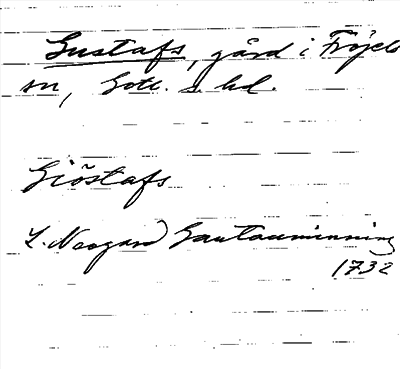 Gustafs, gård i Fröjels
sn, Gotl. s. hd.
Giöstafs
L. Neogard Gautauminning
1732